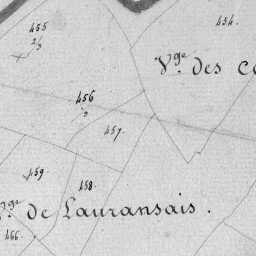 455
434.
Vge. des
456
457.
459.
458.
ge. de Lauransais.
466.